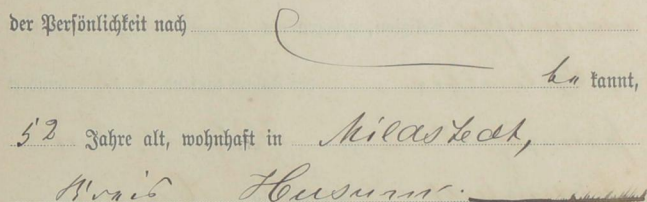 der Persönlichkeit nach
be kannt,
52 Jahre alt, wohnhaft in Mildstedt,
Kreis Husum.